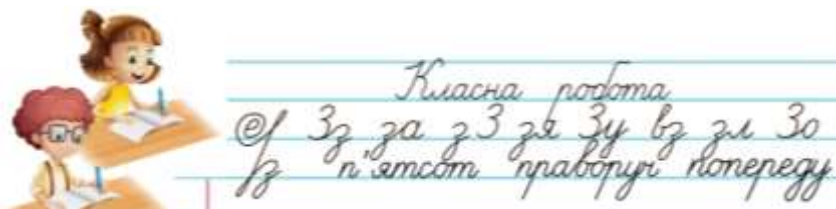 Класна робота
Зз за зЗ зя Зу вз зл Зо
з п'ятсот праворуч попереду